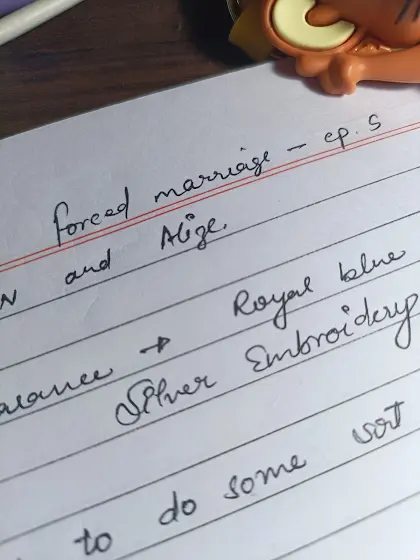 forced marriage - ep. 5
N and Alize.
→ Royal blue
Silver Embroidery
to do some sort